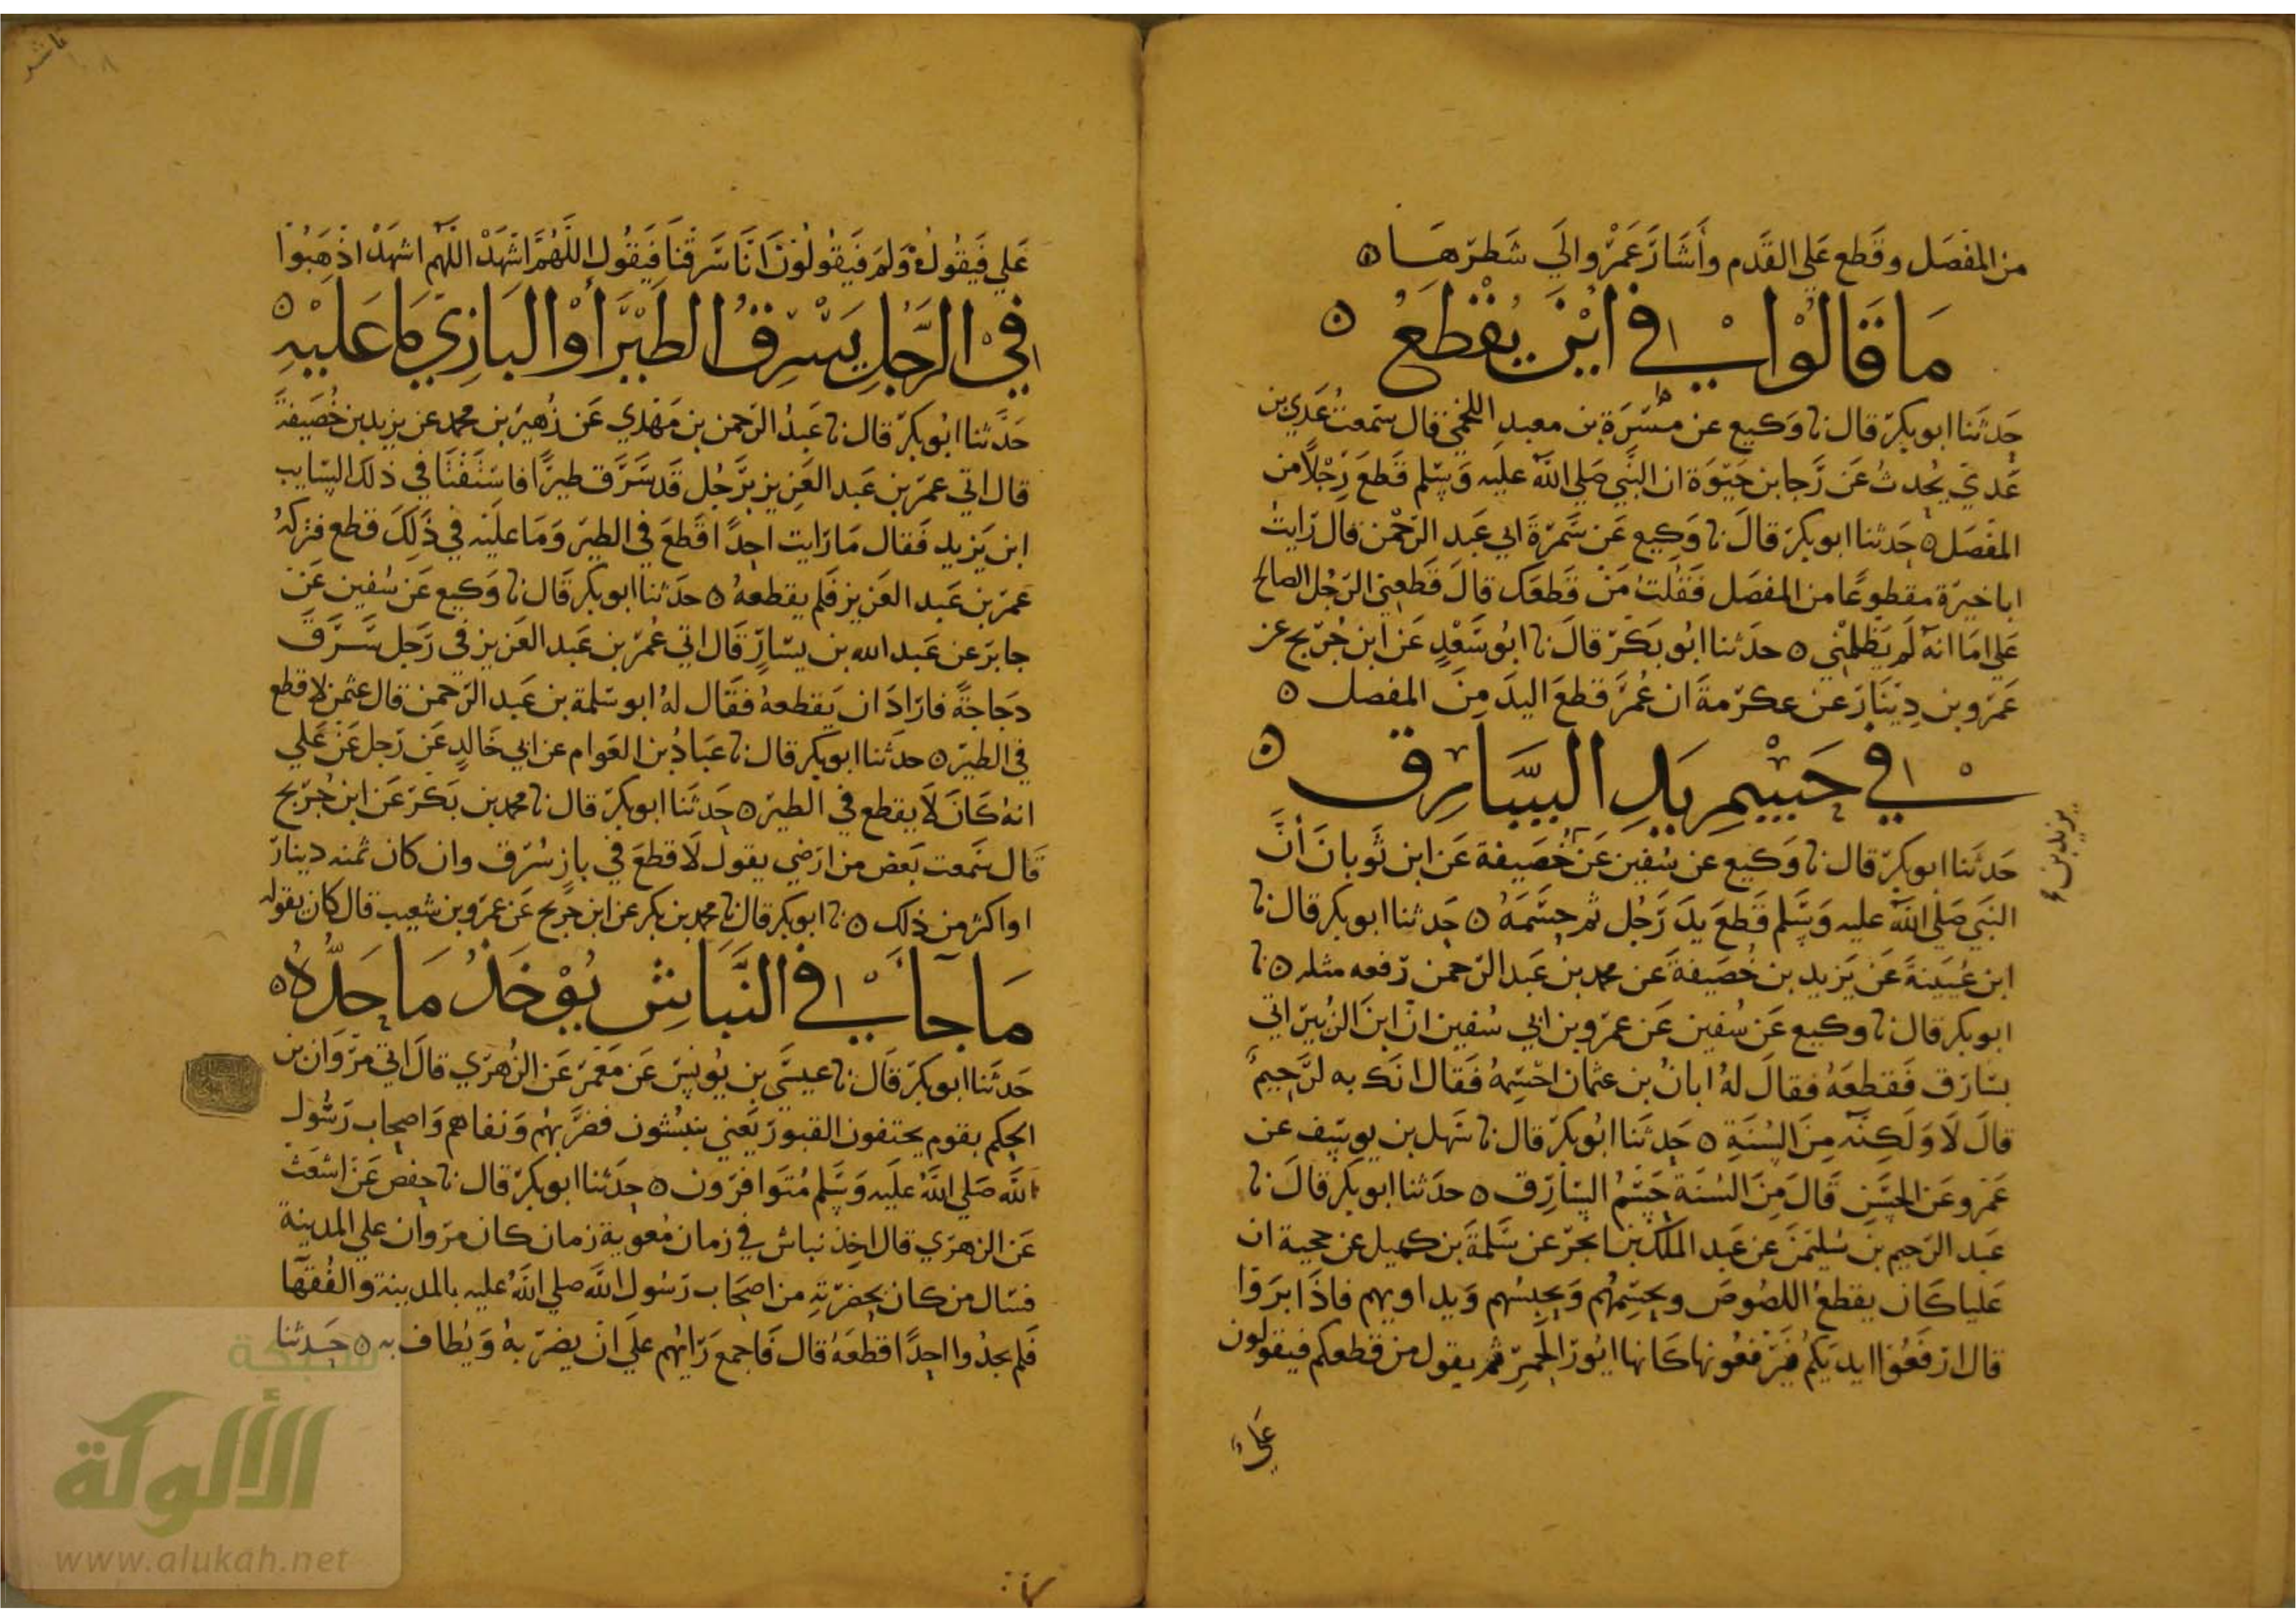 من المفصل وقطع علي القدم وأشار عمرو الي شطرها ه
ما قالوا في اين يقطع ه
حدثنا ابو بكر قال نا وكيع عن مسرة بن معبد اللخمي قال سمعت عدي بن
عدي يحدث عن رجا بن حيوة ان النبي صلي الله عليه وسلم قطع رجلا من
المفصل ه حدثنا ابو بكر قال نا وكيع عن سمرة ابي عبد الرحمن قال رايت
ابا خيرة مقطوعا من المفصل فقلت من قطعك قال قطعني الرجل الصالح
علي اما انه لم يظلمني ه حدثنا ابو بكر قال نا ابو سعد عن ابن جريج عن
عمرو بن دينار عن عكرمة ان عمر قطع اليد من المفصل ه
في حسم يد السارق ه
حدثنا ابو بكر قال نا وكيع عن سفين عن خصيفة عن ابن ثوبان أن
يزيد بن
النبي صلي الله عليه وسلم قطع يد رجل ثم حسمه ه حدثنا ابو بكر قال نا
ابن عيينة عن يزيد بن خصيفة عن محمد بن عبد الرحمن رفعه مثله ه نا
ابو بكر قال نا وكيع عن سفين عن عمرو بن ابي سفين ان ابن الزبير اتي
بسارق فقطعه فقال له ابان بن عثمان احسمه فقال انك به لرحيم
قال لا ولكنه من السنة ه حدثنا ابو بكر قال نا سهل بن يوسف عن
عمرو عن الحسن قال من السنة حسم السارق ه حدثنا ابو بكر قال نا
عبد الرحيم بن سليمن عن عبد الملك بن ابجر عن سلمة بن كهيل عن حجية ان
عليا كان يقطع اللصوص ويحسمهم ويحبسهم ويداويهم فاذا ابروا
قال ارفعوا ايديكم فيرفعونها كانها ايور الحمر ثم يقول من قطعكم فيقولون
علي
علي فيقول ولم فيقولون انا سرقنا فيقول اللهم اشهد اللهم اشهد اذهبوا
في الرجل يسرق الطير أو البازي ما عليه ه
حدثنا ابو بكر قال نا عبد الرحمن بن مهدي عن زهير بن محمد عن يزيد بن خصيفة
قال اتي عمر بن عبد العزيز برجل قد سرق طيرا فاستفتا في ذلك السايب
ابن يزيد فقال ما رايت احدا قطع في الطير وما عليه في ذلك قطع فتركه
عمر بن عبد العزيز فلم يقطعه ه حدثنا ابو بكر قال نا وكيع عن سفين عن
جابر عن عبد الله بن يسار قال اتي عمر بن عبد العزيز في رجل سرق
دجاجة فاراد ان يقطعه فقال له ابو سلمة بن عبد الرحمن قال عثمن لا قطع
في الطير ه حدثنا ابو بكر قال نا عباد بن العوام عن ابي خالد عن رجل عن علي
انه كان لا يقطع في الطير ه حدثنا ابو بكر قال نا محمد بن بكر عن ابن جريج
قال سمعت بعض من ارضي يقول لا قطع في باز سرق وان كان ثمنه دينار
او اكثر من ذلك ه نا ابو بكر قال نا محمد بن بكر عن ابن جريج عن عمرو بن شعيب قال كان يقوله
ما جا في النباش يوخذ ما حده ه
حدثنا ابو بكر قال نا عيسي بن يونس عن معمر عن الزهري قال اتي مروان بن
الحكم بقوم يختفون القبور يعني ينبشون فضربهم ونفاهم واصحاب رسول
الله صلي الله عليه وسلم متوافرون ه حدثنا ابو بكر قال نا حفص عن اشعث
عن الزهري قال اخذ نباش في زمان معوية زمان كان مروان علي المدينة
فسال من كان بحضرته من اصحاب رسول الله صلي الله عليه بالمدينة والفقها
فلم يجدوا احدا قطعه قال فاجمع رايهم علي ان يضربه ويطاف به ه حدثنا
شبكة
الألوكة
www.alukah.net